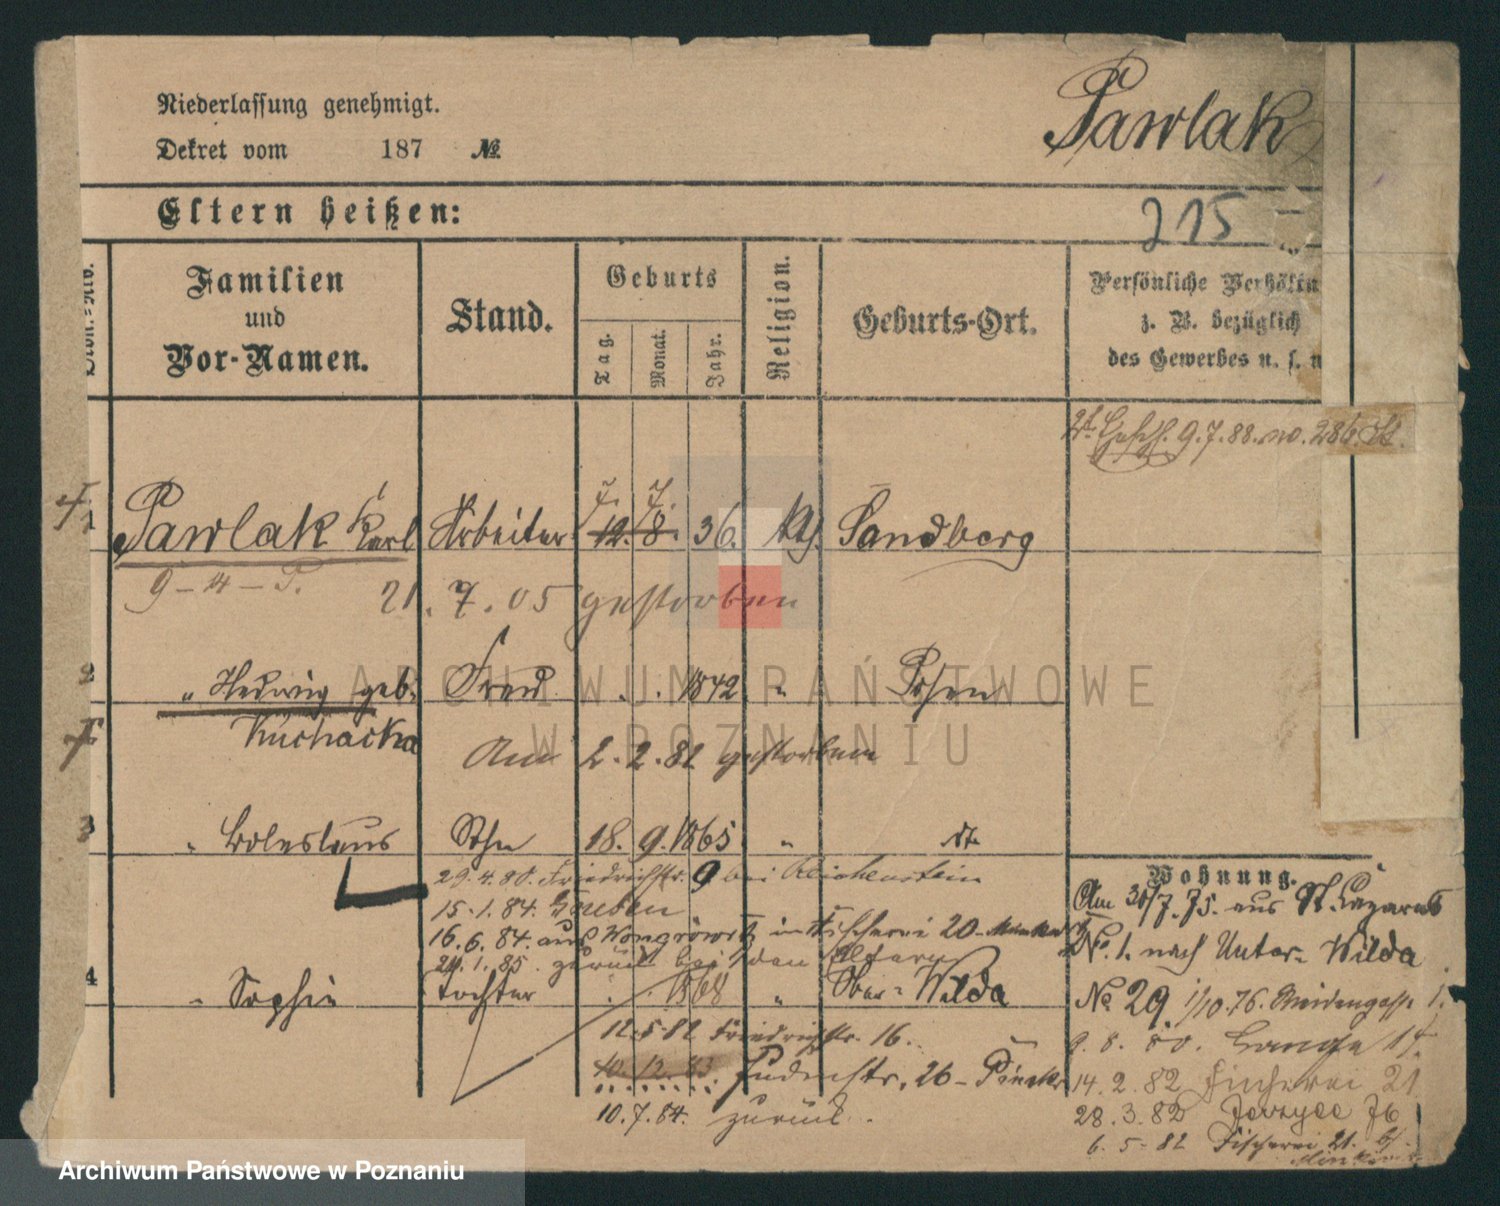 Niederlassung genehmigt.
Dekret vom 187 №
Pawlak
Eltern heißen:
215
Familien und Vor-Namen.
Stand.
Geburts
Tag.
Monat.
Jahr.
Religion.
Geburts-Ort.
Persönliche Verhältn
z. B. bezüglich
des Gewerbes u. s. w
9.7.88. no. 286
1 Pawlak Karl Arbeiter 7. 7. 12. 8. 36. kth. Sandberg
9-4-P. 21. 7. 05 gestorben
2 " Hedwig geb. Frau . . 1842 " Posen
Kuchacka
Am 2. 2. 82 gestorben
3 " Boleslaus Sohn 18. 9. 1865 " dto
29.4.80. Friedrichstr. 9 bei Reichenstein
15.1.84. Gneben
16.6.84. aus Wongrowitz in Fischerei 20
24.1.85. zurück bei den Eltern
4 " Sophie Tochter . . 1868 " Ober-Wilda
12.5.82 Friedrichstr. 16.
10.12.83 Judenstr. 26
10.7.84. zurück.
Wohnung.
Am 30/7.75. aus St. Lazarus
No. 1. nach Unter-Wilda
No 29. 1/10.76.
9.8.80. Lange
14.2.82 Fischerei 21
28.3.82 Jerzyce 76
6.5.82 Fischerei 21.
ARCHIWUM PAŃSTWOWE
W POZNANIU
Archiwum Państwowe w Poznaniu